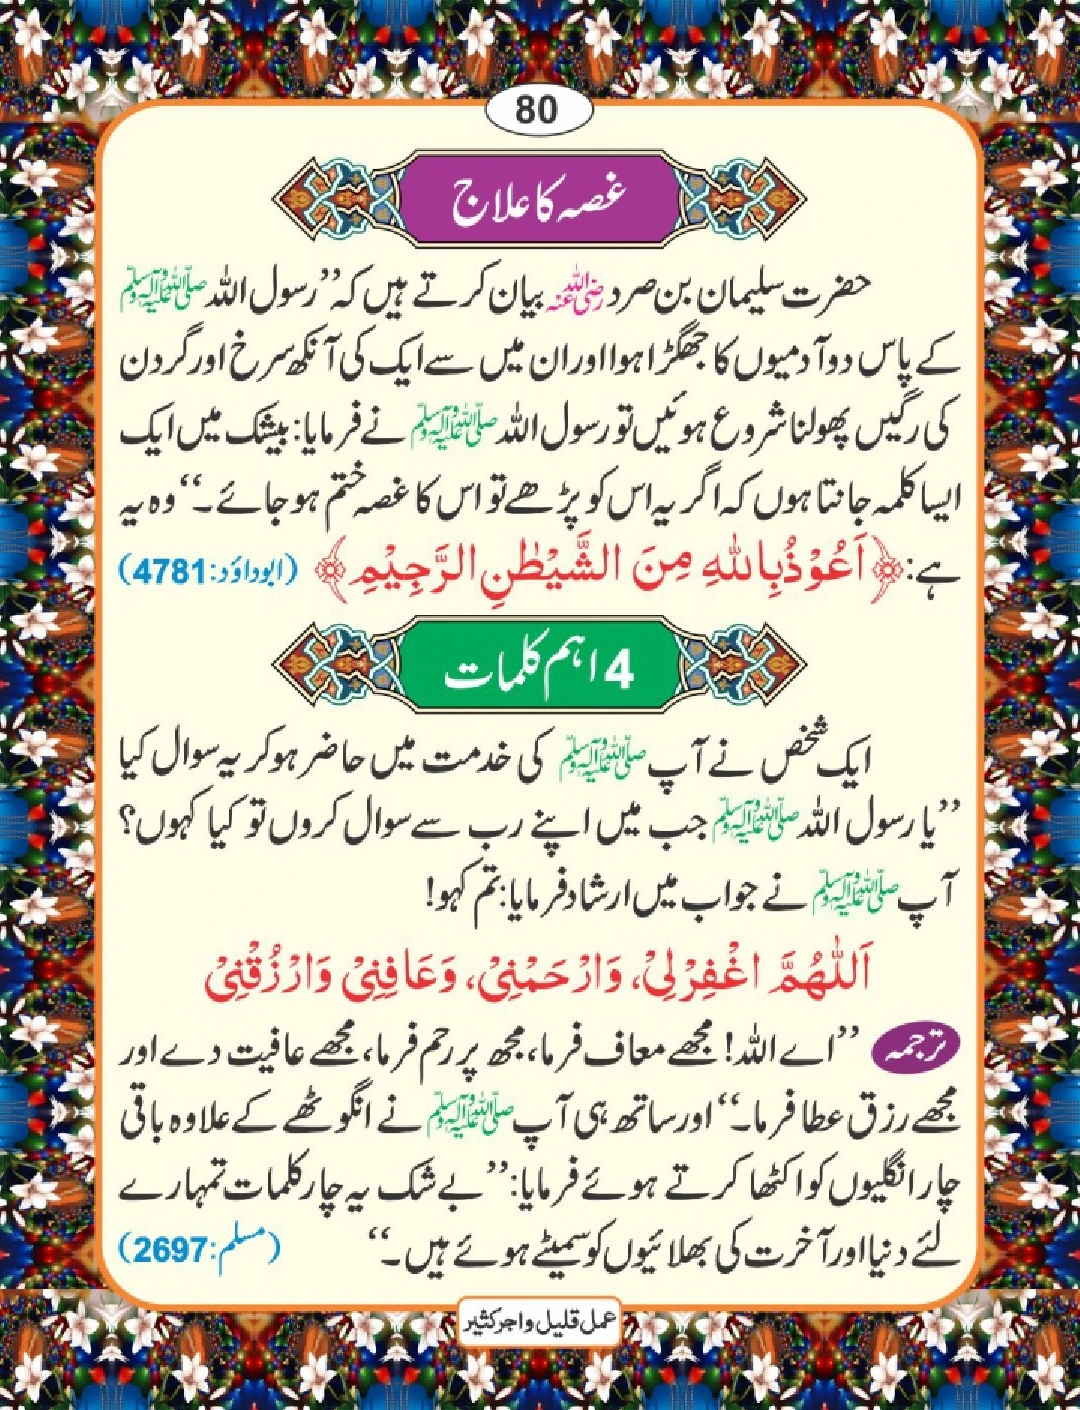 80
غصہ کا علاج
حضرت سلیمان بن صرد رضی اللہ عنہ بیان کرتے ہیں کہ ”رسول اللہ ﷺ
کے پاس دو آدمیوں کا جھگڑا ہوا اور ان میں سے ایک کی آنکھ سرخ اور گردن
کی رگیں پھولنا شروع ہوئیں تو رسول اللہ ﷺ نے فرمایا: بیشک میں ایک
ایسا کلمہ جانتا ہوں کہ اگر یہ اس کو پڑھے تو اس کا غصہ ختم ہو جائے۔“ وہ یہ
ہے: ﴿اَعُوْذُ بِاللهِ مِنَ الشَّيْطٰنِ الرَّجِيْمِ﴾ (ابوداؤد: 4781)
4 اہم کلمات
ایک شخص نے آپ ﷺ کی خدمت میں حاضر ہو کر یہ سوال کیا
”یا رسول اللہ ﷺ جب میں اپنے رب سے سوال کروں تو کیا کہوں؟
آپ ﷺ نے جواب میں ارشاد فرمایا: تم کہو!
اَللّٰهُمَّ اغْفِرْلِيْ، وَارْحَمْنِيْ، وَعَافِنِيْ وَارْزُقْنِيْ
ترجمہ ”اے اللہ! مجھے معاف فرما، مجھ پر رحم فرما، مجھے عافیت دے اور
مجھے رزق عطا فرما۔“ اور ساتھ ہی آپ ﷺ نے انگوٹھے کے علاوہ باقی
چار انگلیوں کو اکٹھا کرتے ہوئے فرمایا: ”بے شک یہ چار کلمات تمہارے
لئے دنیا اور آخرت کی بھلائیوں کو سمیٹے ہوئے ہیں۔“ (مسلم: 2697)
عمل قلیل و اجر کثیر